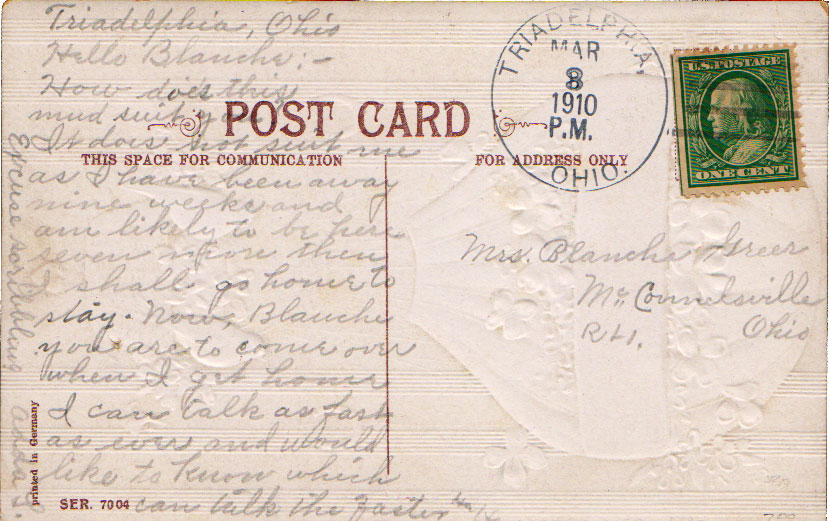 Triadelphia, Ohio
Hello Blanche:-
How does this
mud suit you
It does not suit me
as I have been away
nine weeks and
am likely to be here
seven more then
I shall go home to
stay. Now, Blanche
you are to come over
when I get home
I can talk as fast
as ever and would
like to know which
can talk the faster
Excuse scribbling
POST CARD
THIS SPACE FOR COMMUNICATION
FOR ADDRESS ONLY
TRIADELPHIA,
MAR
8
1910
P.M.
OHIO.
U.S. POSTAGE
ONE CENT
Mrs. Blanche Greer
McConnelsville
R#1. Ohio
printed in Germany
SER. 7004